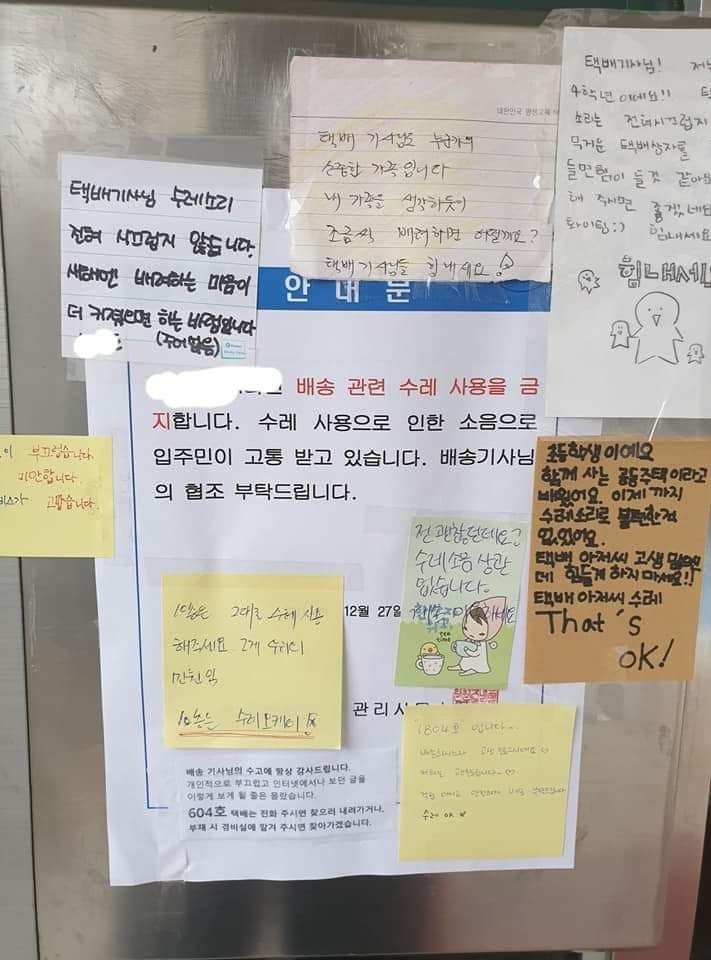 택배기사님 수레소리
전혀 시끄럽지 않습니다.
새해엔 배려하는 마음이
더 커졌으면 하는 바램입니다
(주어없음)
택배 기사님도 누군가의
소중한 가족입니다
내 가족을 생각하듯이
조금씩 배려하면 어떨까요?
택배 기사님들 힘내세요
택배기사님!
4학년이에요!!
소리는 전혀시끄럽지
무거운 택배상자를
들면힘이 들것 같아요
해 주시면 좋겠네요
화이팅:? 힘내세요
힘내세
안 내 문
배송 관련 수레 사용을 금
지합니다. 수레 사용으로 인한 소음으로
입주민이 고통 받고 있습니다. 배송기사님
의 협조 부탁드립니다.
12월 27일
관리사무
부끄럽습니다.
미안합니다.
고맙습니다.
전 괜찮던데요?
수레소음 상관
없습니다.
tea
time
초등학생이에요
함께 사는 공동주택이라고
배웠어요. 이제까지
수레소리로 불편한적
없었어요.
택배 아저씨 고생 많으신
데 힘들게 하지마세요!!
택배 아저씨 수레
That's
OK!
그대로 수레 사용
해주세요
수레오케이
배송 기사님의 수고에 항상 감사드립니다.
개인적으로 부끄럽고 인터넷에서나 보던 글을
이렇게 보게 될 줄은 몰랐습니다.
604호 택배는 전화 주시면 찾으러 내려가거나,
부재 시 경비실에 맡겨 주시면 찾아가겠습니다.
1804호 입니다..
수레 OK